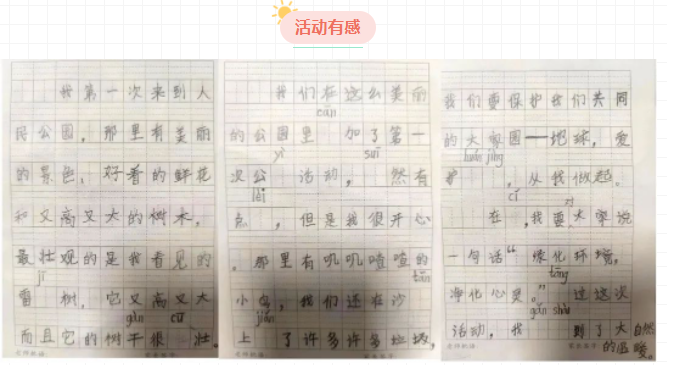 活动有感
我第一次来到人
民公园，那里有美丽
的景色、好看的鲜花
和又高又大的树木，
最壮观的是我看见的
jī
番 树，它又高又大
gàn cū
而且它的树干很 壮。
我们在这么美丽
cān
的公园里 加了第一
yì suī
次公 活动， 然有
lèi
点 ，但是我很开心
。那里有叽叽喳喳的
小鸟，我们还在沙
jiǎn
上 了许多许多垃圾，
我们要保护我们共同
的大家园——地球，爱
huán jìng
护 ，从我做起。
cǐ
在 ，我要对大家说
一句话“绿化环境，
净化心灵。”通过这次
gǎn shòu
活动，我 到了大自然
的温暖。